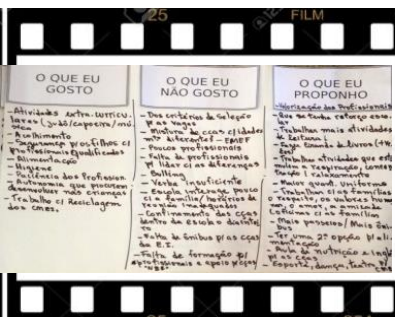 25
FILM
O QUE EU
GOSTO
- Atividades extra-curricu-
lares (judô/capoeira/mú-
sica
- Acolhimento
- Segurança p/os filhos c/
profissionais qualificados
- Alimentação
- Higiene
- Paciência dos Profission.
- Autonomia que procuram
desenvolver nas crianças
- Trabalho c/ Reciclagem
dos CMEs.
O QUE EU
NÃO GOSTO
- Dos critérios de Seleção
p/ as vagas
- Mistura de ccas c/idades
diferentes - EMEF
- Poucos profissionais
- Falta de profissionais
p/ lidar c/ as diferenças
- Bulling
- Verba insuficiente
- Escola interage pouco
c/ a família/horários de
reunião inadequados
- Confinamento das ccas
dentro da Escola
- Falta de ônibus p/ as ccas
da E.I.
- Falta de formação p/
profissionais e apoio
O QUE EU
PROPONHO
- Valorização dos Profissionais
- Que se tenha reforço esco-
lar
- Trabalhar mais atividades
de leitura
- Maior quant. Uniformes
- Trabalhar c/ as famílias
o respeito, os valores
o amor, a amizade
- Oficinas c/ as famílias
- Mais passeios/Mais
- Ter uma 2ª opção p/ ali-
mentação
- Aula de nutrição e
p/ as ccas
- Esporte, dança, teatro p/